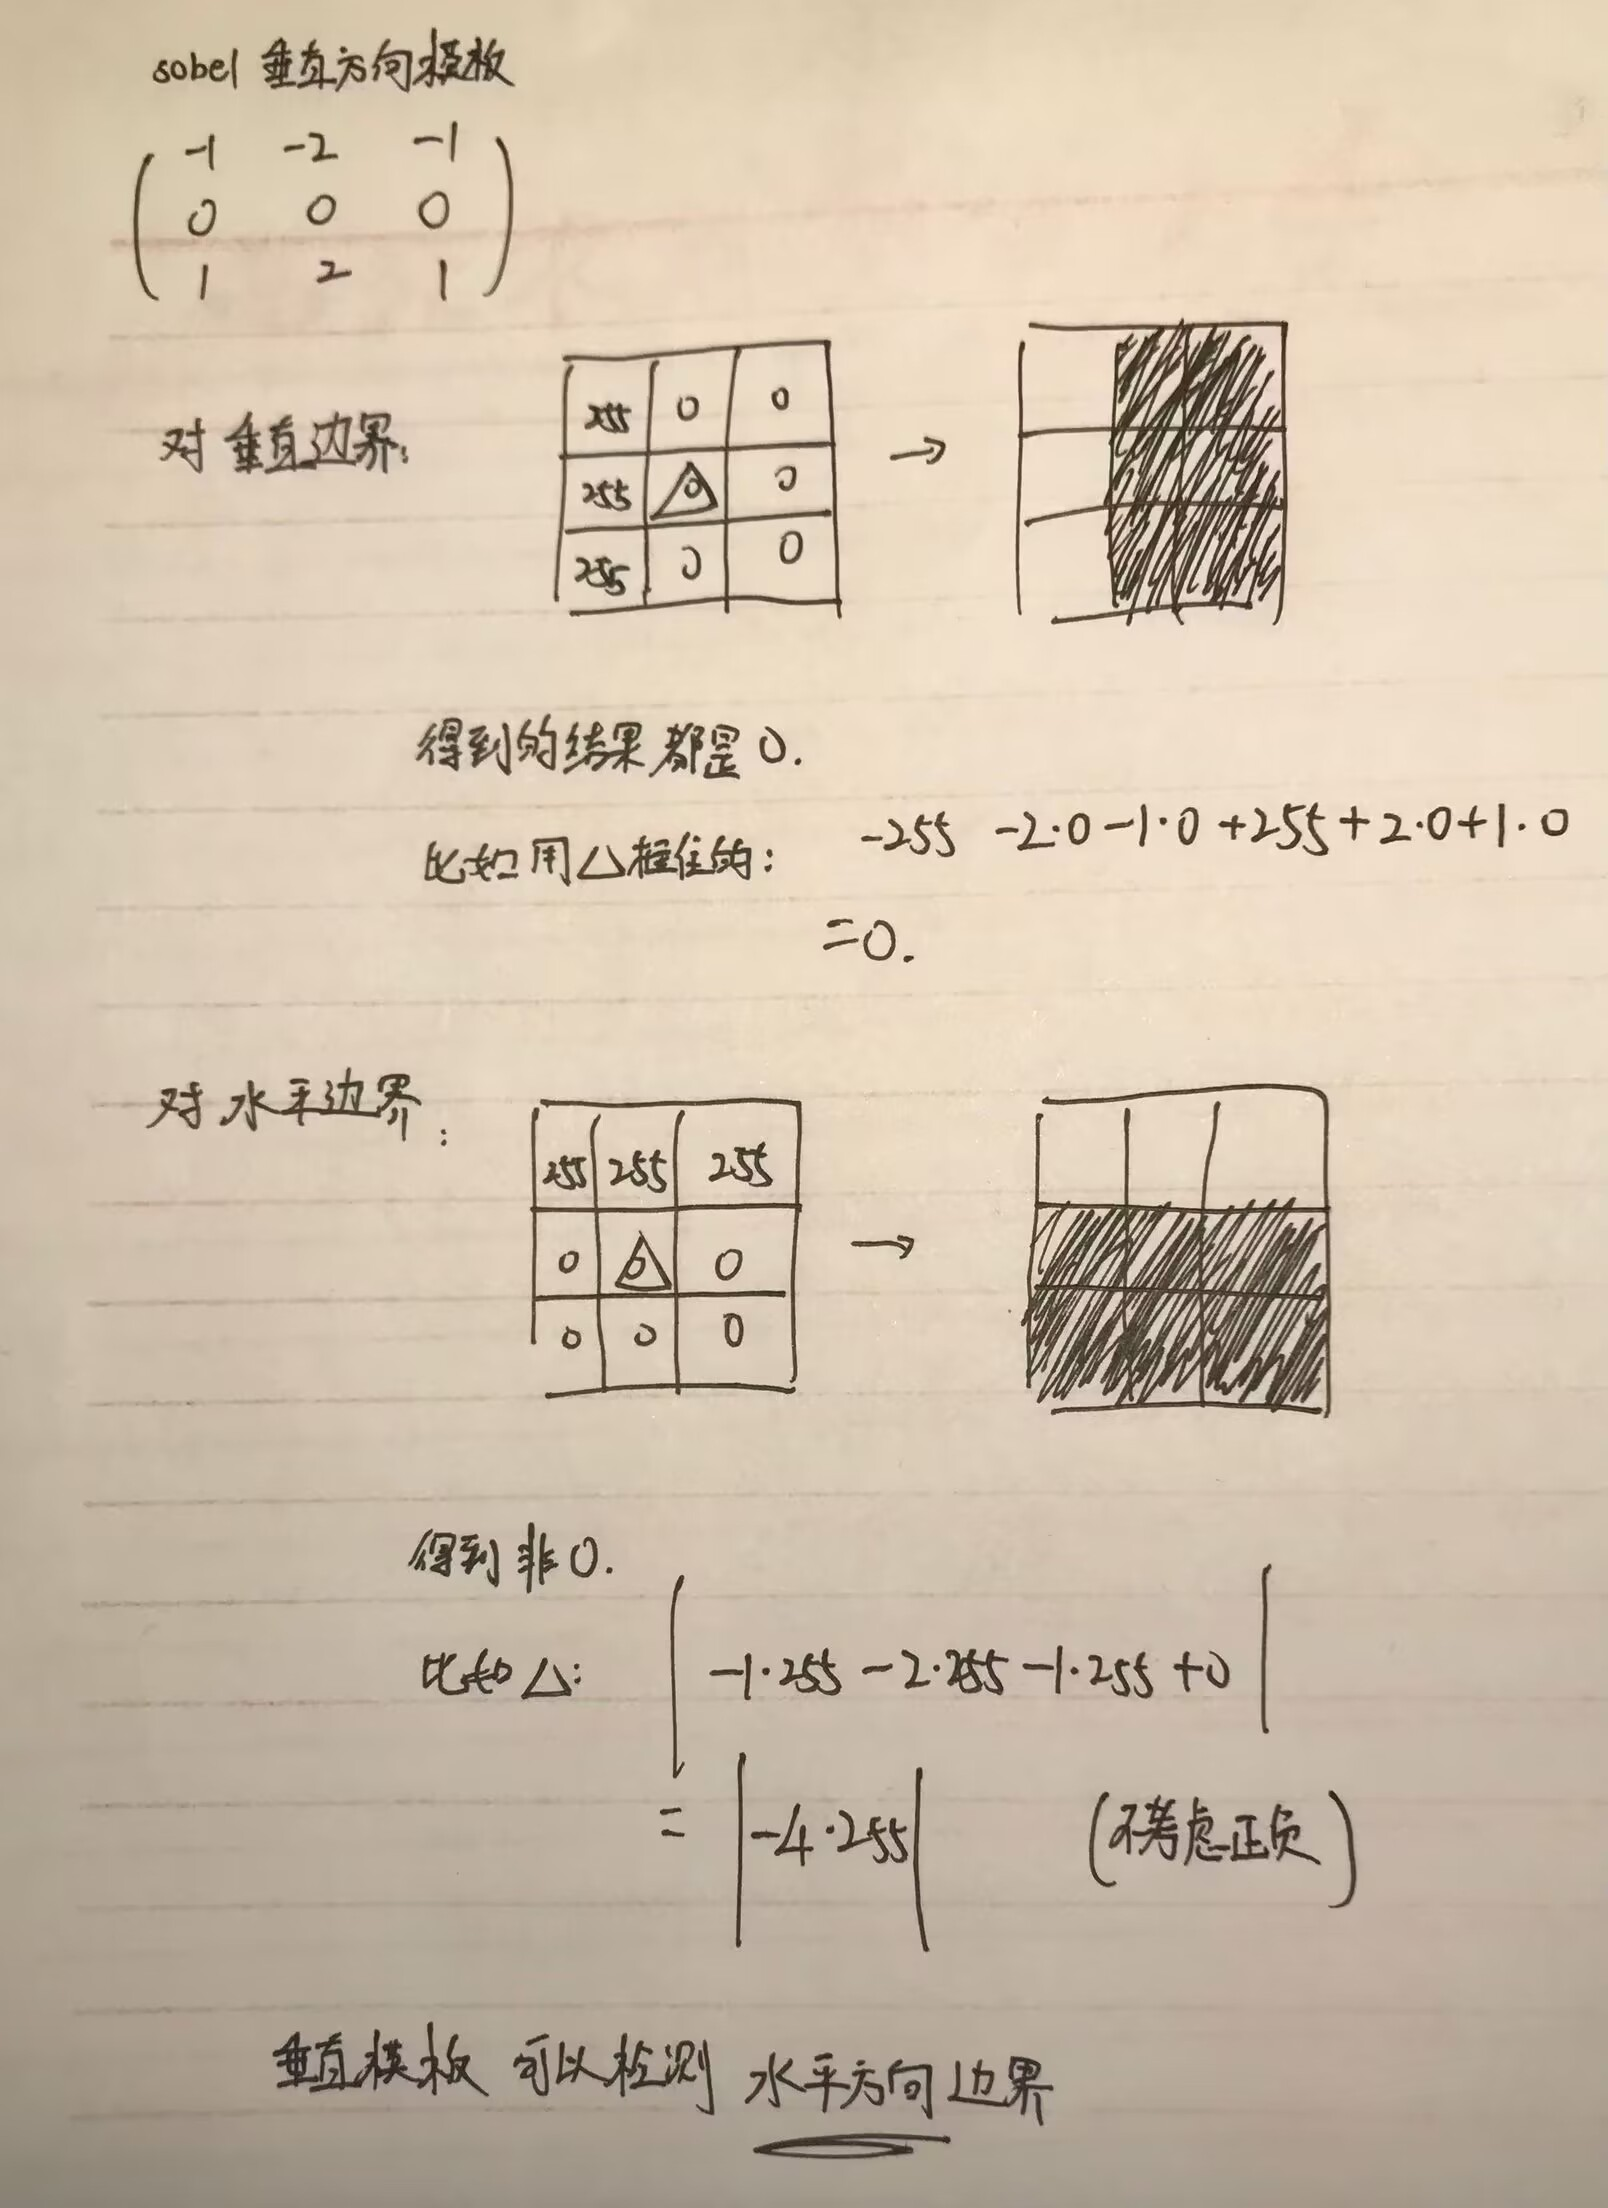 sobel 垂直方向模板
-1 -2 -1
0 0 0
1 2 1
对垂直边界:
255 0 0
255 0 0
255 0 0
→
得到的结果都是0.
比如用△框住的: -255 -2·0-1·0+255+2·0+1·0
=0.
对水平边界:
255 255 255
0 0 0
0 0 0
→
得到非0.
比如△: |-1·255-2·255-1·255+0|
= |-4·255| (不考虑正负)
垂直模板 可以检测 水平方向边界